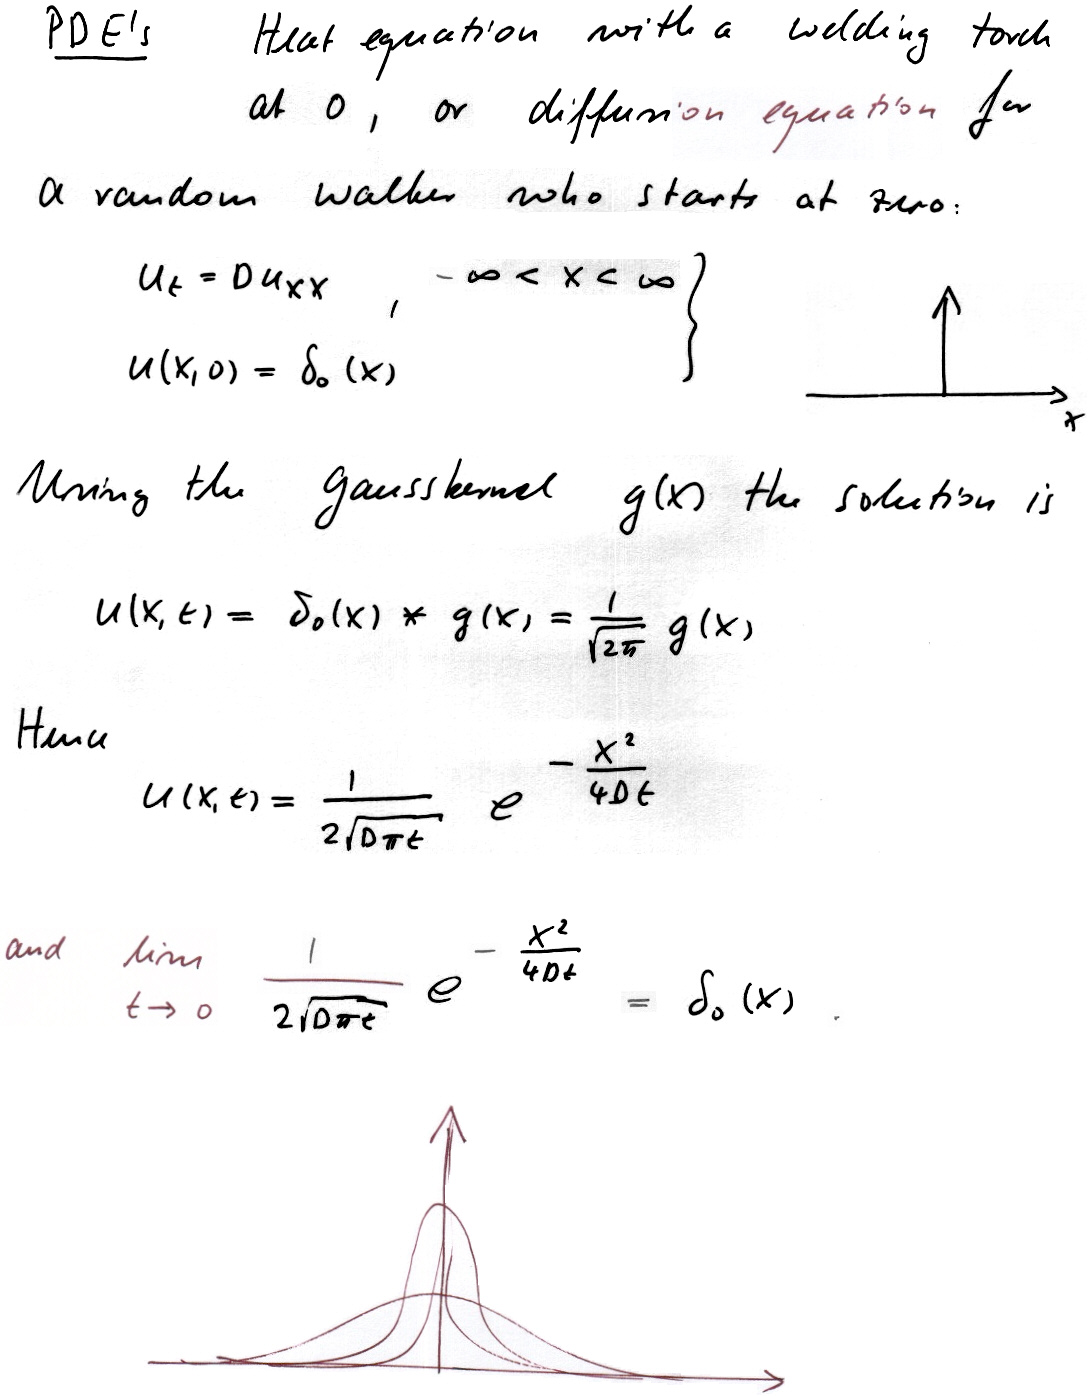 PDE's Heat equation with a welding torch
at 0, or diffusion equation for
a random walker who starts at zero:
u_t = D u_xx , -∞ < x < ∞ }
u(x,0) = δ₀(x)
x
Using the gausskernel g(x) the solution is
u(x,t) = δ₀(x) * g(x) = 1/√(2π) g(x)
Hence
u(x,t) = 1/(2√(Dπt)) e^(-x²/(4Dt))
and lim t→0 1/(2√(Dπt)) e^(-x²/(4Dt)) = δ₀(x).